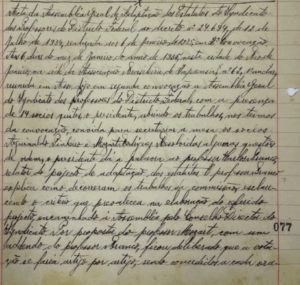 Acta da Assembléa Geral de Adaptação dos Estatutos do Syndicato
dos Professores do Districto Federal ao decreto nº 24.694, de 12 de
Julho de 1934, realizada em 6 de janeiro de 1935 em 2ª Convocação
Aos 6 dias do mez de janeiro do anno de 1935, nesta cidade do Rio de
Janeiro na séde da Associação Brasileira de Imprensa,
reunida em segunda convocação a Assembléa Geral
do Syndicato dos professores do Districto Federal, com a presença
de 19 socios quites o presidente, abrindo os trabalhos, nos termos
da convocação, convida para secretariar a mesa os socios
Resolvidas algumas questões
de ordem, o presidente dá a palavra ao professor
relator do projecto de adaptação dos estatutos. O professor
explica como decorreram os trabalhos da commissão, esclare-
cendo o criterio que prevaleceu na elaboração do referido
projecto, encaminhado á Assembléa pelo Conselho Director do
Syndicato. Por proposta do professor Mozart, com um
additivo do professor, ficou deliberado que a vota-
ção se faria artigo por artigo, sendo concedida a cada ora-
077